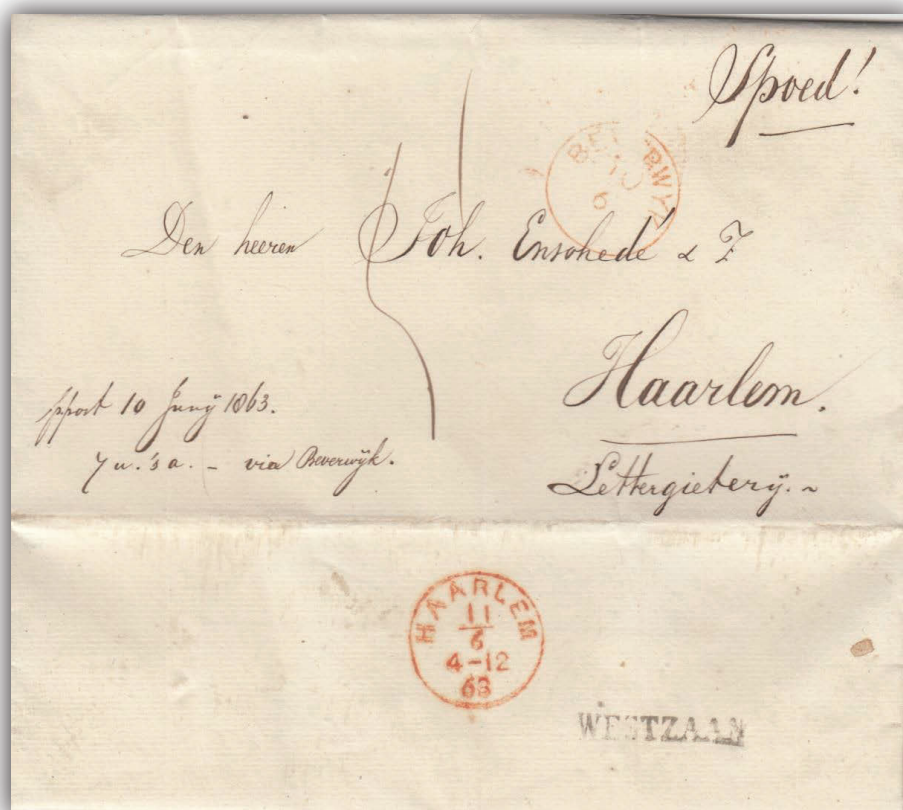 Spoed!
BEVERWYK
10
6
Den heeren Joh. Enschede & Z
Haarlem.
Lettergietery. ~
10 Junÿ 1863.
7 u. 's a. – via Beverwÿk.
HAARLEM
11
6
4-12
63
WESTZAAN